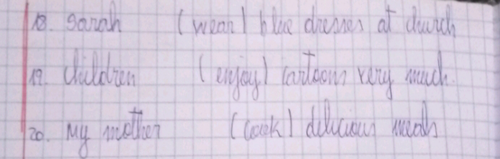 18. Sarah (wear) blue dresses at church
19. Children (enjoy) cartoons very much.
20. My mother (cook) delicious meals